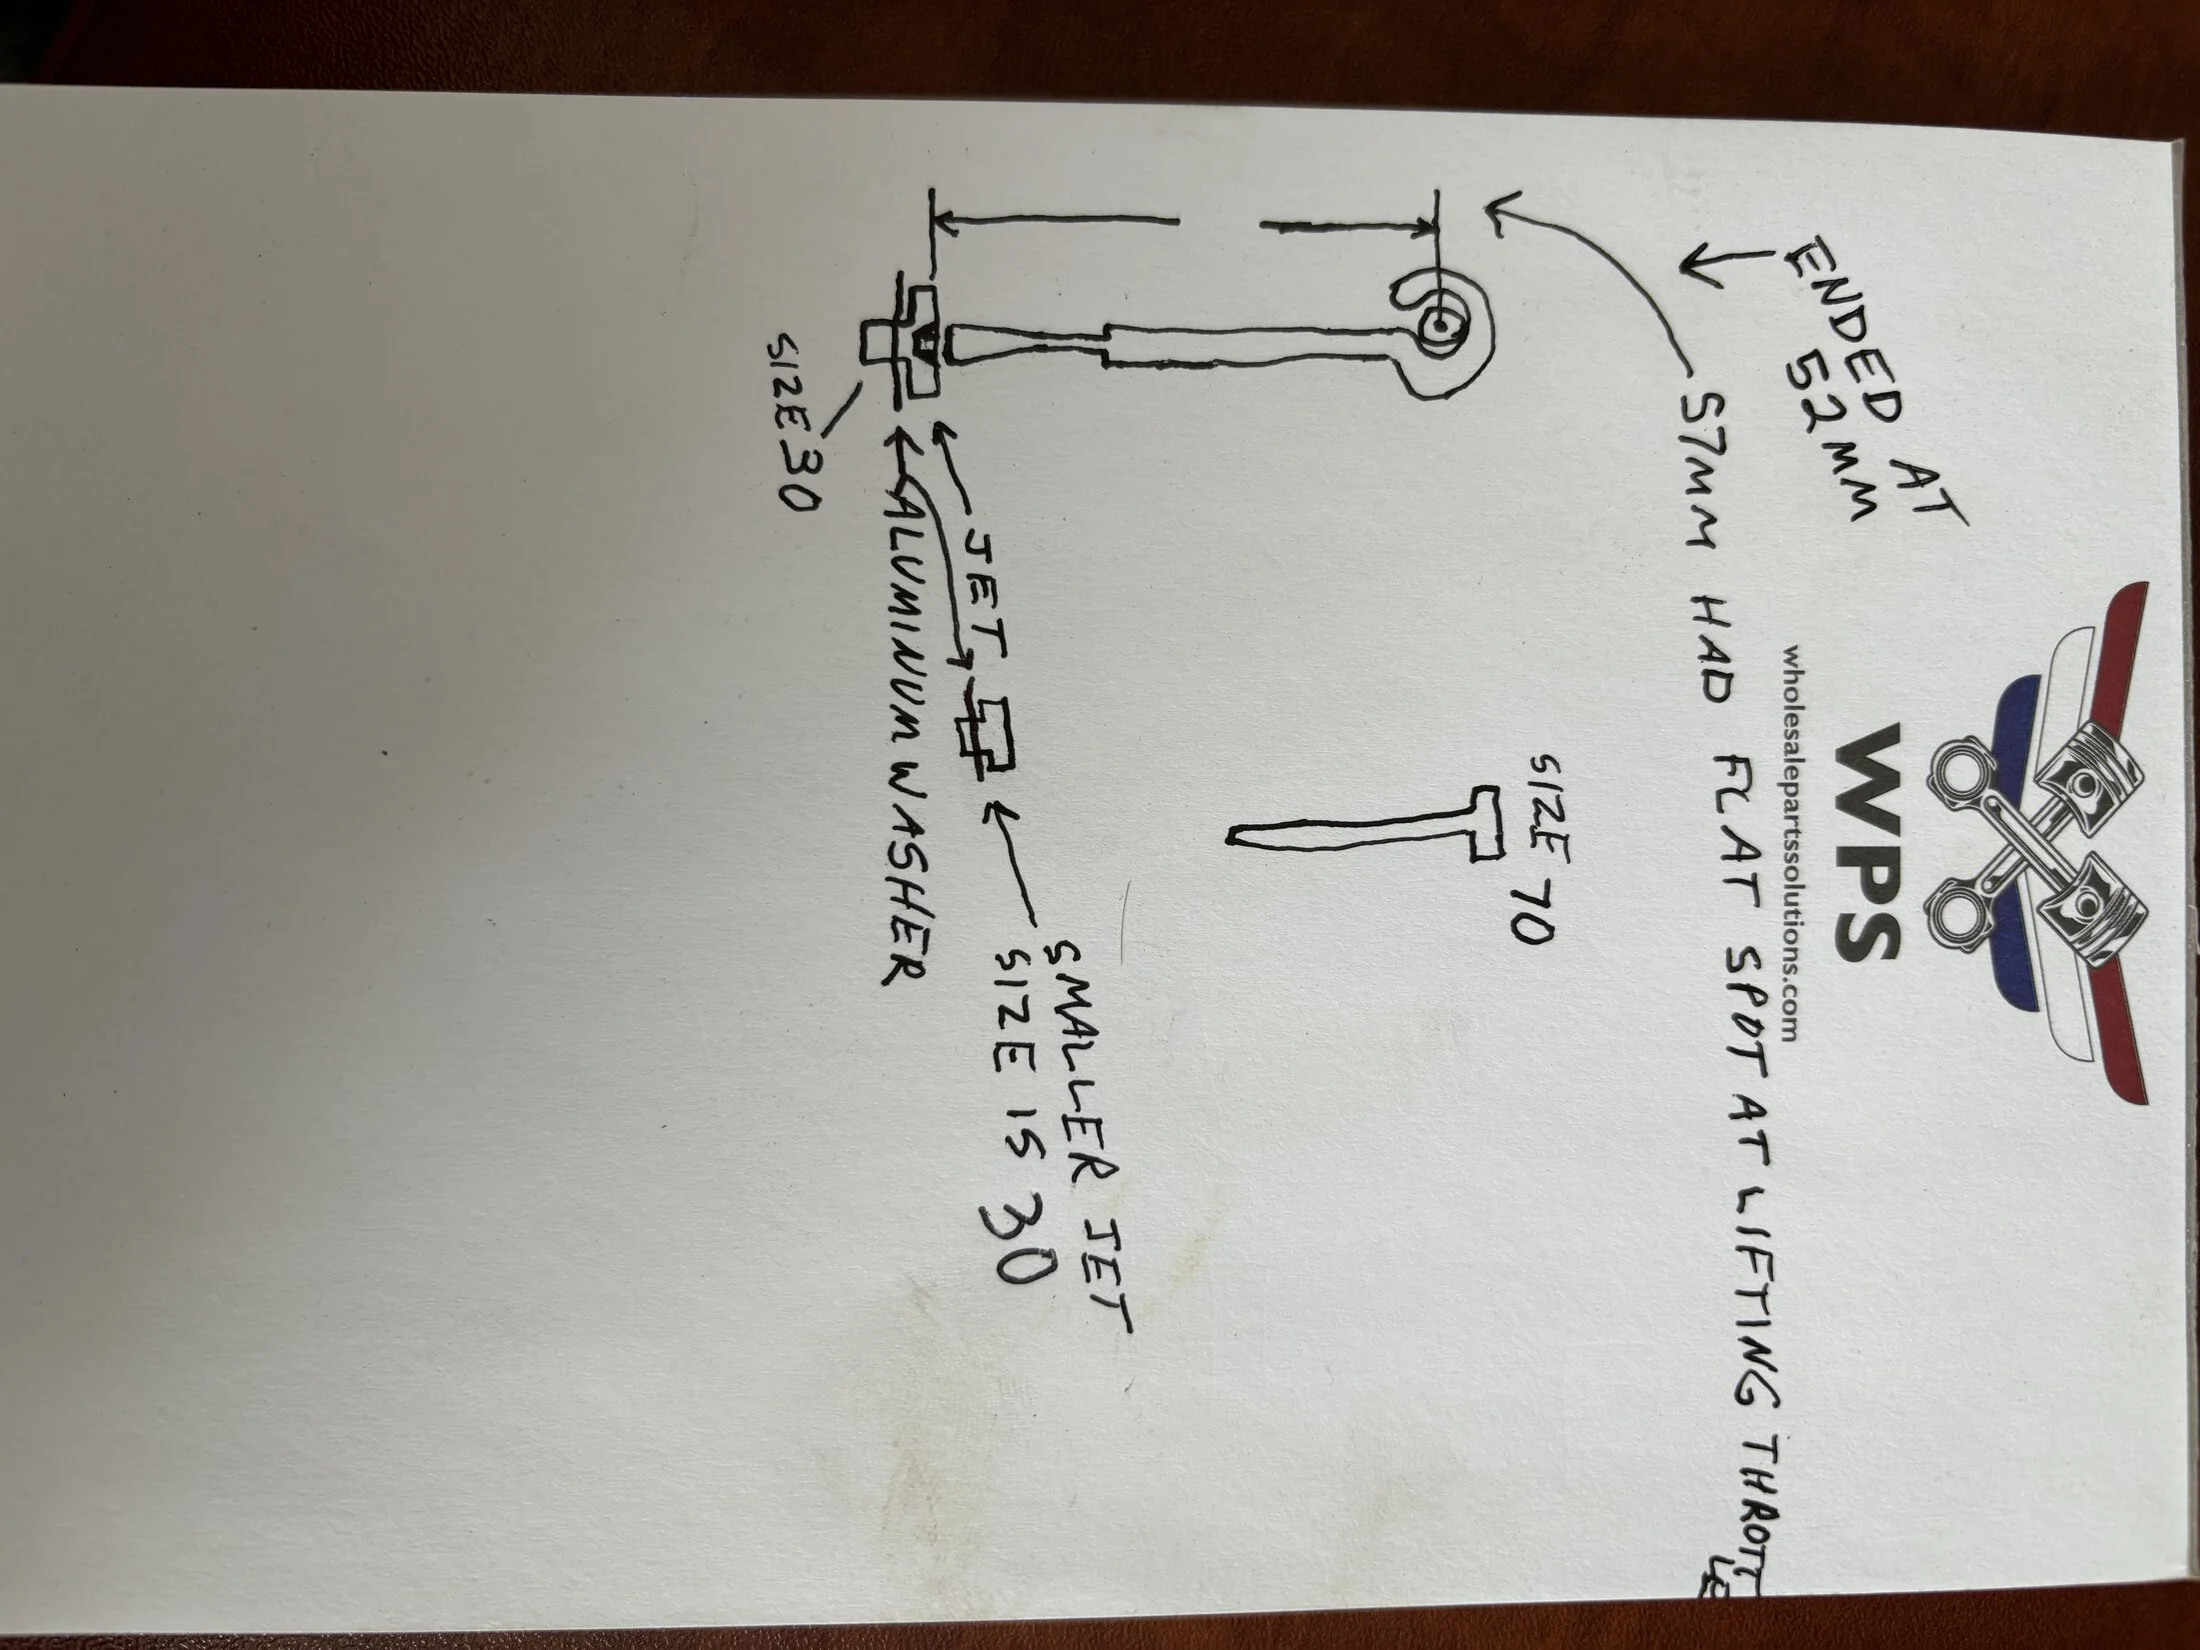 WPS
wholesalepartssolutions.com
ENDED AT
52MM
57MM HAD FLAT SPOT AT LIFTING THROTTLE
SIZE 70
SMALLER JET
SIZE IS 30
JET
ALUMINUM WASHER
SIZE 30